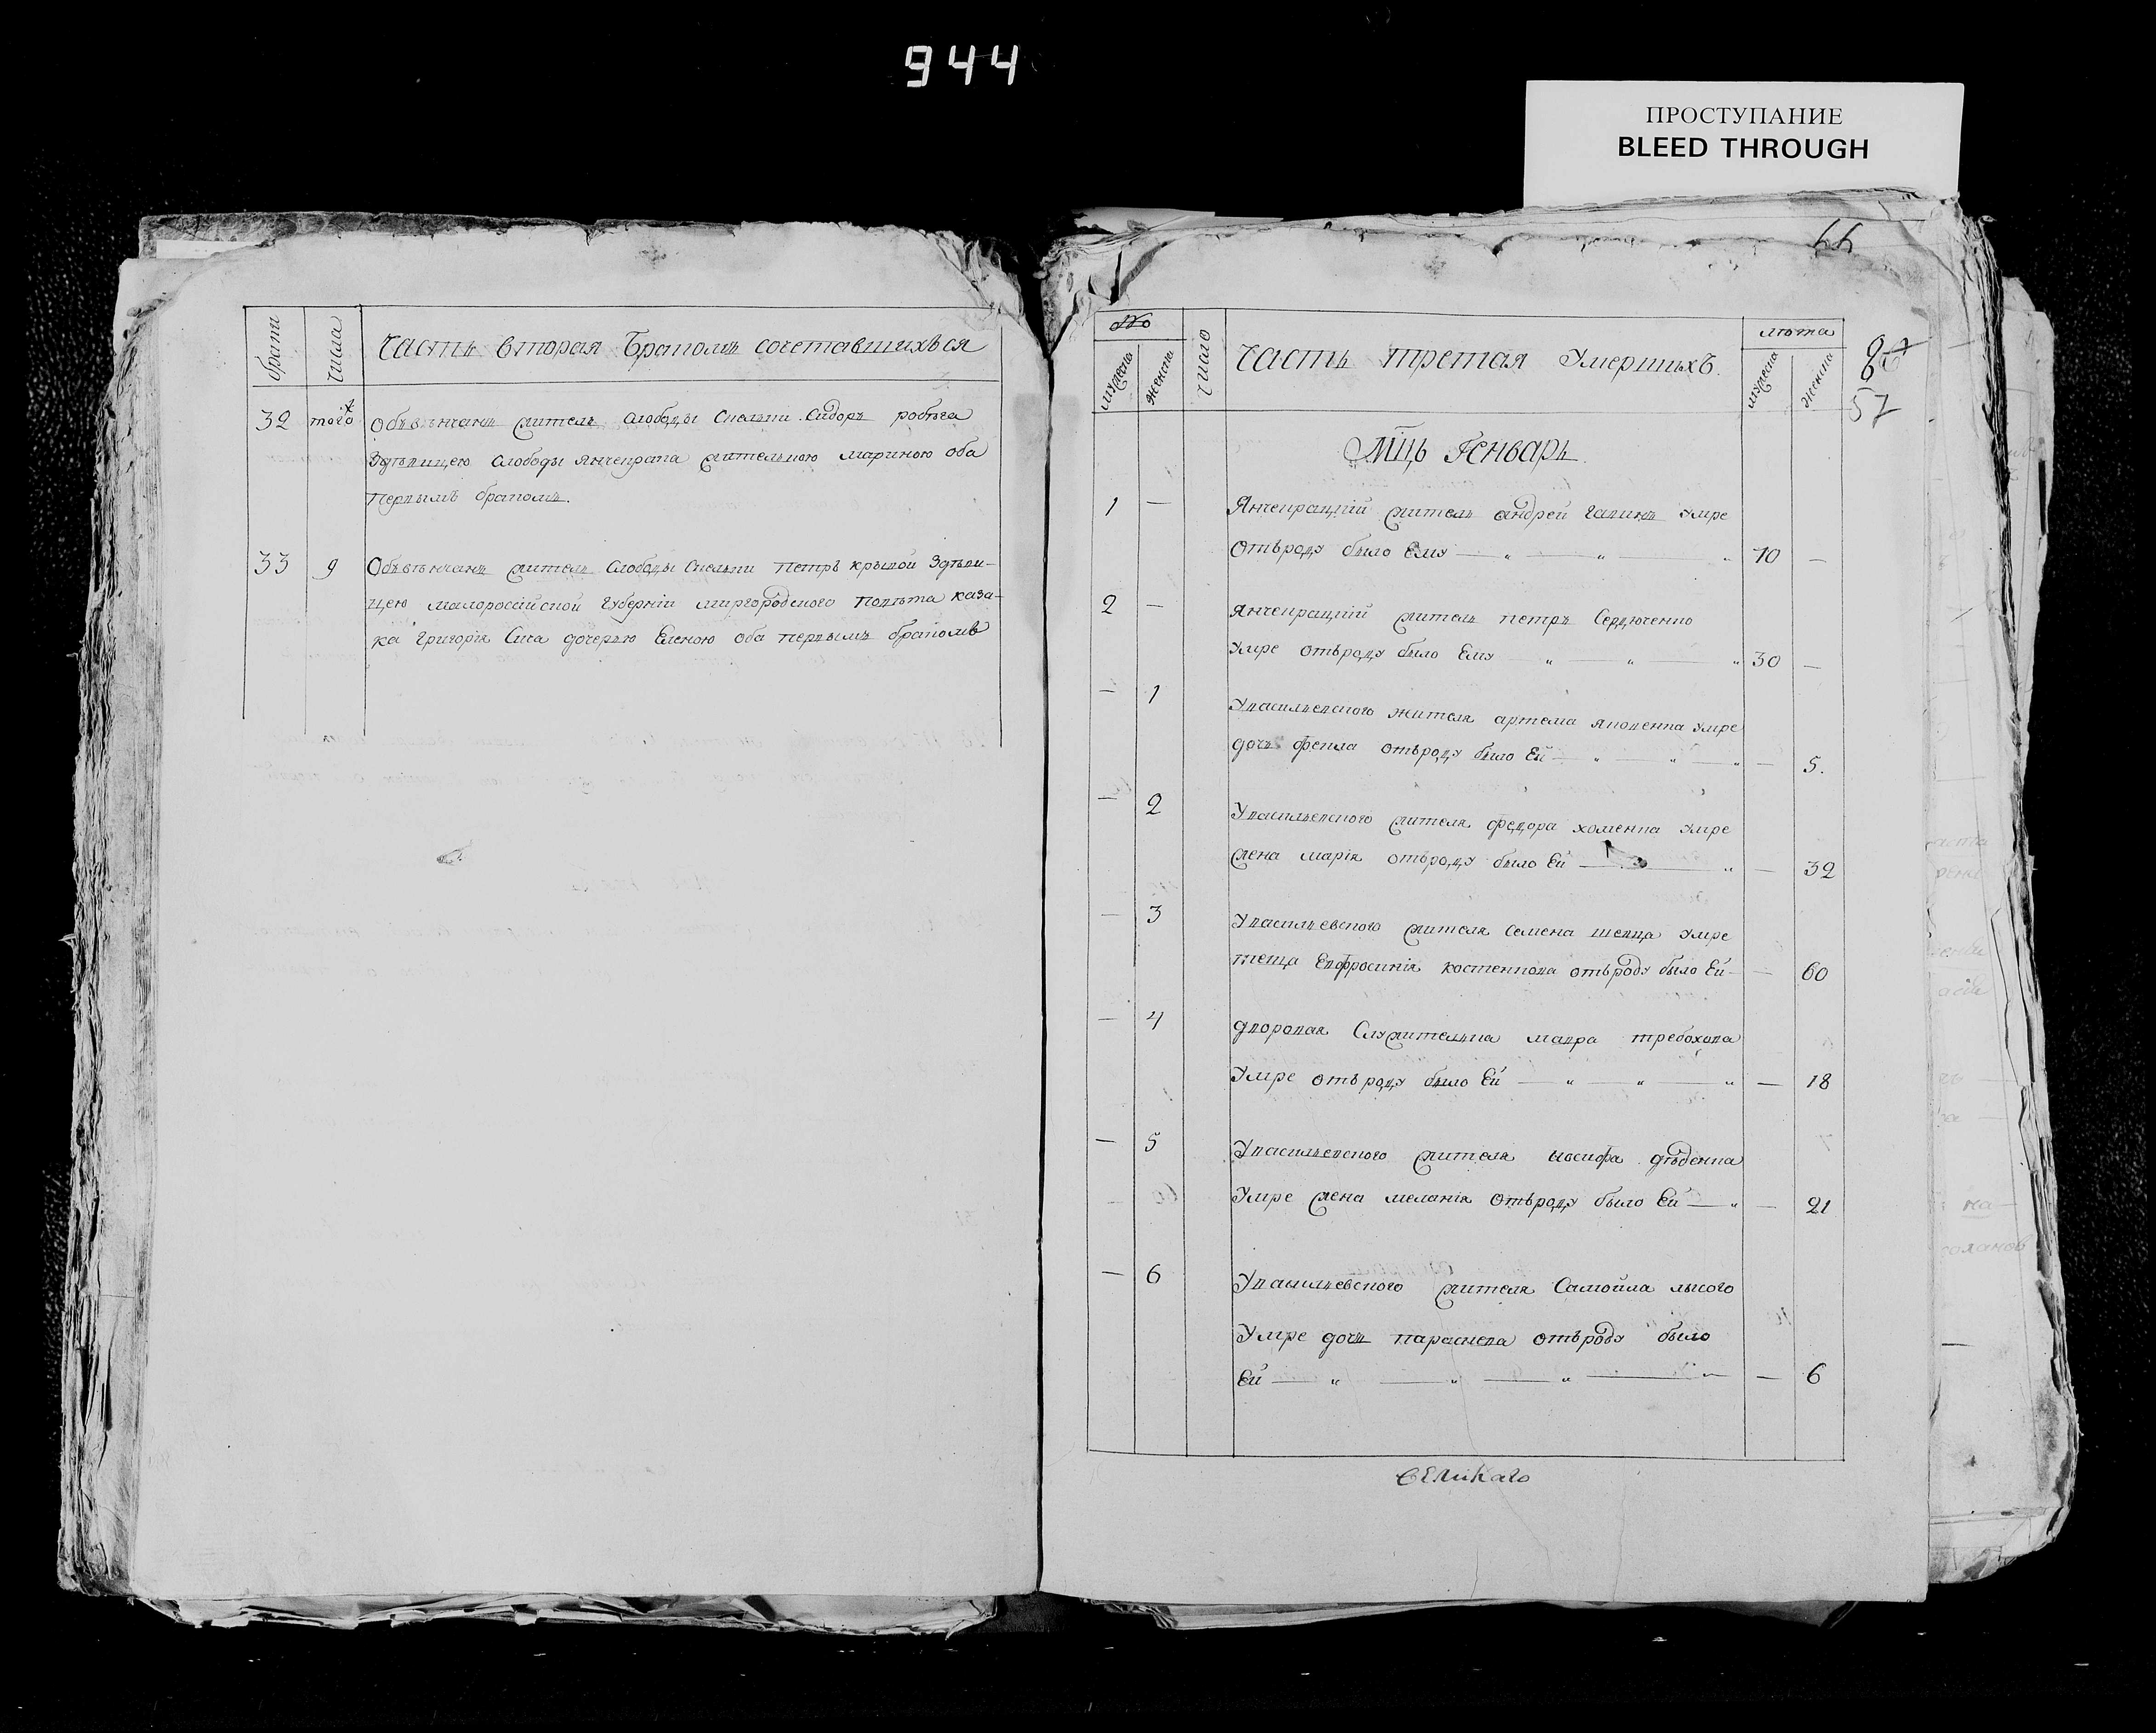 944
ПРОСТУПАНИЕ
BLEED THROUGH
браки
числа
Часть вторая Бракомъ сочетавшихъся
32 того
Обвѣнчанъ житель слободы Сидоръ
Здѣвицею слободы Янчекрака жителькою Мариною оба
первымъ бракомъ.
33 9
Обвѣнчанъ житель слободы петръ крывой Здѣви-
цею малороссійской губерніи миргородского повѣта каза-
ка григорія дочерью Еленою оба первымъ бракомъ
44
№
мужска
женска
число
Часть третая Умершихъ.
лѣта
мужска
женска
57
Мцъ Генварь
1 —
Янчекрацкій житель андрей галикъ умре
отъроду было Ему — „ — „ — „ 70 —
2 —
Янчекрацкій житель петръ Сердюченко
умре отъроду было Ему — „ — „ — „ 30 —
— 1
Увасильевского жителя артема яковенка умре
дочь фекла отъроду было Ей — „ — „ — „ — 5.
— 2
Увасильевского жителя федора хоменка умре
жена марія отъроду было Ей — „ — 32
— 3
Увасильевского жителя семена шевца умре
теща Евфросинія костенкова отъроду было Ей — — 60
— 4
дворовая Служителька мавра требохова
Умре отъроду было Ей — „ — „ — „ — 18
— 5
Увасильевского жителя иосифа дѣденка
Умре жена меланія отъроду было Ей — „ — 21
— 6
Увасильевского жителя Самойла лысого
Умре дочь параскева отъроду было
Ей — „ — „ — „ — „ — 6
великаго